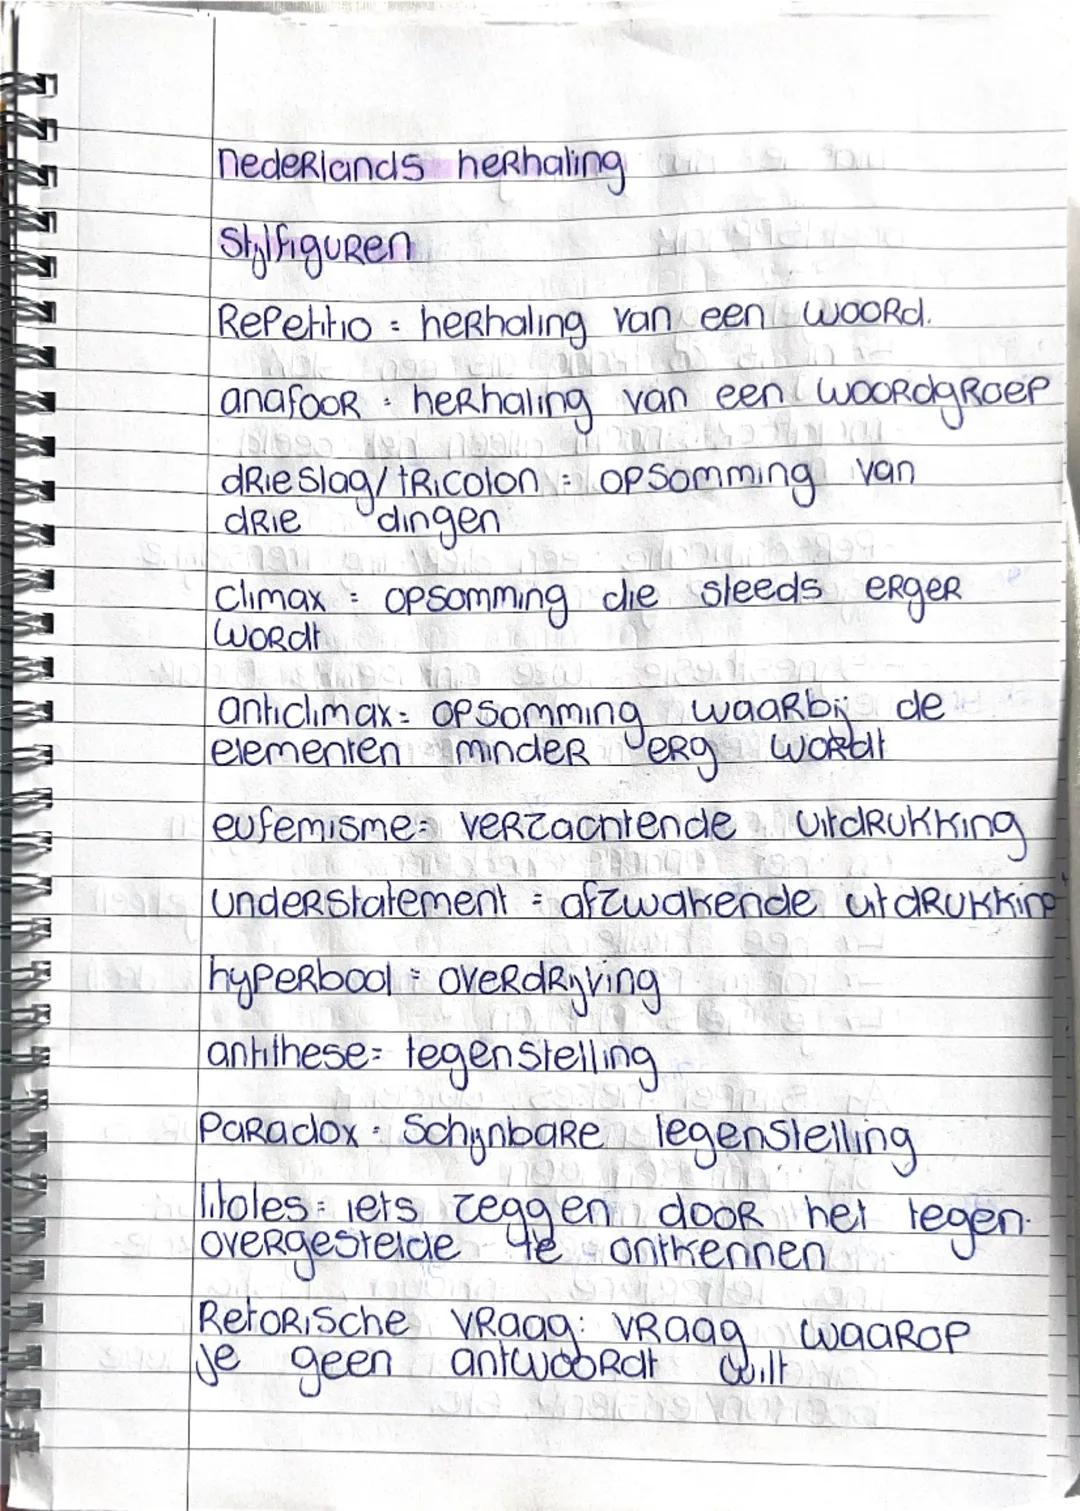 nederlands herhaling
Stijlfiguren
Repetitio = herhaling van een woord.
anafoor = herhaling van een woordgroep
drieslag/tricolon = opsomming van
drie dingen
climax = opsomming die steeds erger
wordt
anticlimax = opsomming waarbij de
elementen minder erg wordt
eufemisme = verzachtende uitdrukking
understatement = afzwakende uitdrukking
hyperbool = overdrijving
antithese = tegenstelling
Paradox = Schijnbare tegenstelling
litotes = iets zeggen door het tegen-
overgestelde te ontkennen
Retorische vraag: vraag waarop
je geen antwoordt wilt